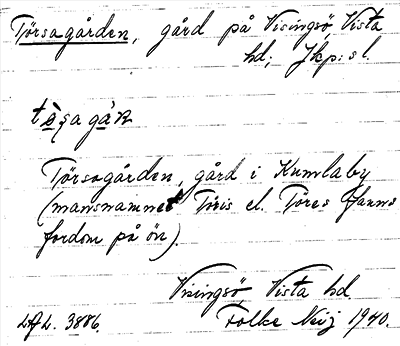 Törsagården, gård på Visingsö, Vista
hd; Jkp:s l.
tö̀ṣagá̊ꞦN
Törsagården, gård i Kumlaby
(mansnamnet Töris el. Töres fanns
fordom på ön).
Visingsö, Vista hd.
LAL. 3886. Folke Neij 1940.